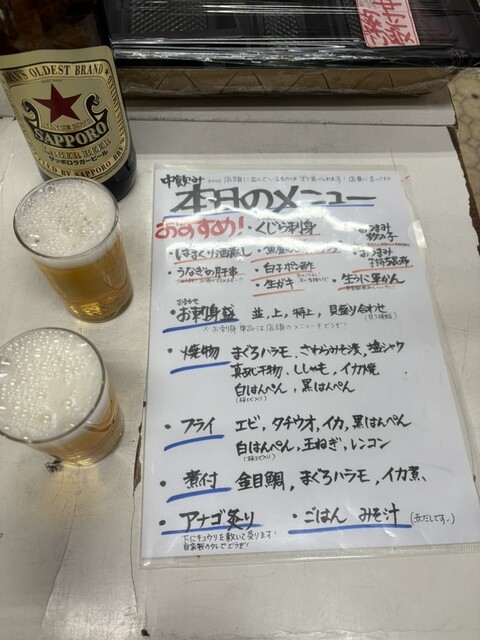 OLDEST BRAND
SAPPORO
LAGER BEER
サッポロラガービール
中飲み
本日のメニュー
おすすめ!
・くじら刺身
・はまぐり酒蒸し
・うなぎの肝串
・白子ポン酢
・生ガキ
・おつまみ
数の子
・おつまみ
子持昆布
・生うに軍かん
おまかせ
・お刺身盛 並, 上, 特上, 貝盛り合わせ
・焼物 まぐろハラモ, さわらみそ漬, 塩シャケ
真あじ干物, ししゃも, イカ焼
白はんぺん, 黒はんぺん
・フライ エビ, タチウオ, イカ, 黒はんぺん
白はんぺん, 玉ねぎ, レンコン
・煮付 金目鯛, まぐろハラモ, イカ煮,
・アナゴ炙り ・ごはん みそ汁 (赤だしです。)
下にキュウリを敷いて炙ります!
自家製のタレでどうぞ!